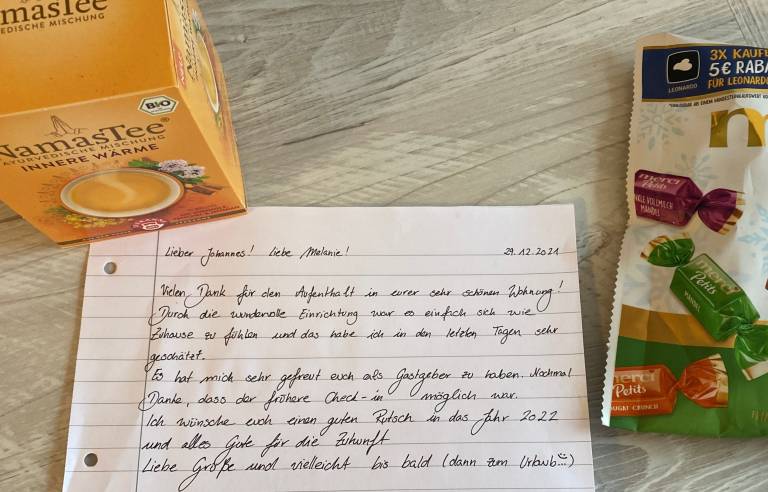 NamasTee
AYURVEDISCHE MISCHUNG
BIO
NamasTee®
AYURVEDISCHE MISCHUNG
INNERE WÄRME
Lieber Johannes! Liebe Melanie! 29.12.2021
Vielen Dank für den Aufenthalt in eurer sehr schönen Wohnung!
Durch die wundervolle Einrichtung war es einfach sich wie
Zuhause zu fühlen und das habe ich in den letzten Tagen sehr
geschätzt.
Es hat mich sehr gefreut euch als Gastgeber zu haben. Nochmal
Danke, dass der frühere Check-in möglich war.
Ich wünsche euch einen guten Rutsch in das Jahr 2022
und alles Gute für die Zukunft
Liebe Grüße und vielleicht bis bald (dann zum Urlaub...)
3X KAUFE
5€ RABA
FÜR LEONARDO
LEONARDO
m
merci
Petits
KLE VOLLMILCH
MANDEL
merci
Petits
MANDEL
merci
Petits
NOUGAT CRUNCH